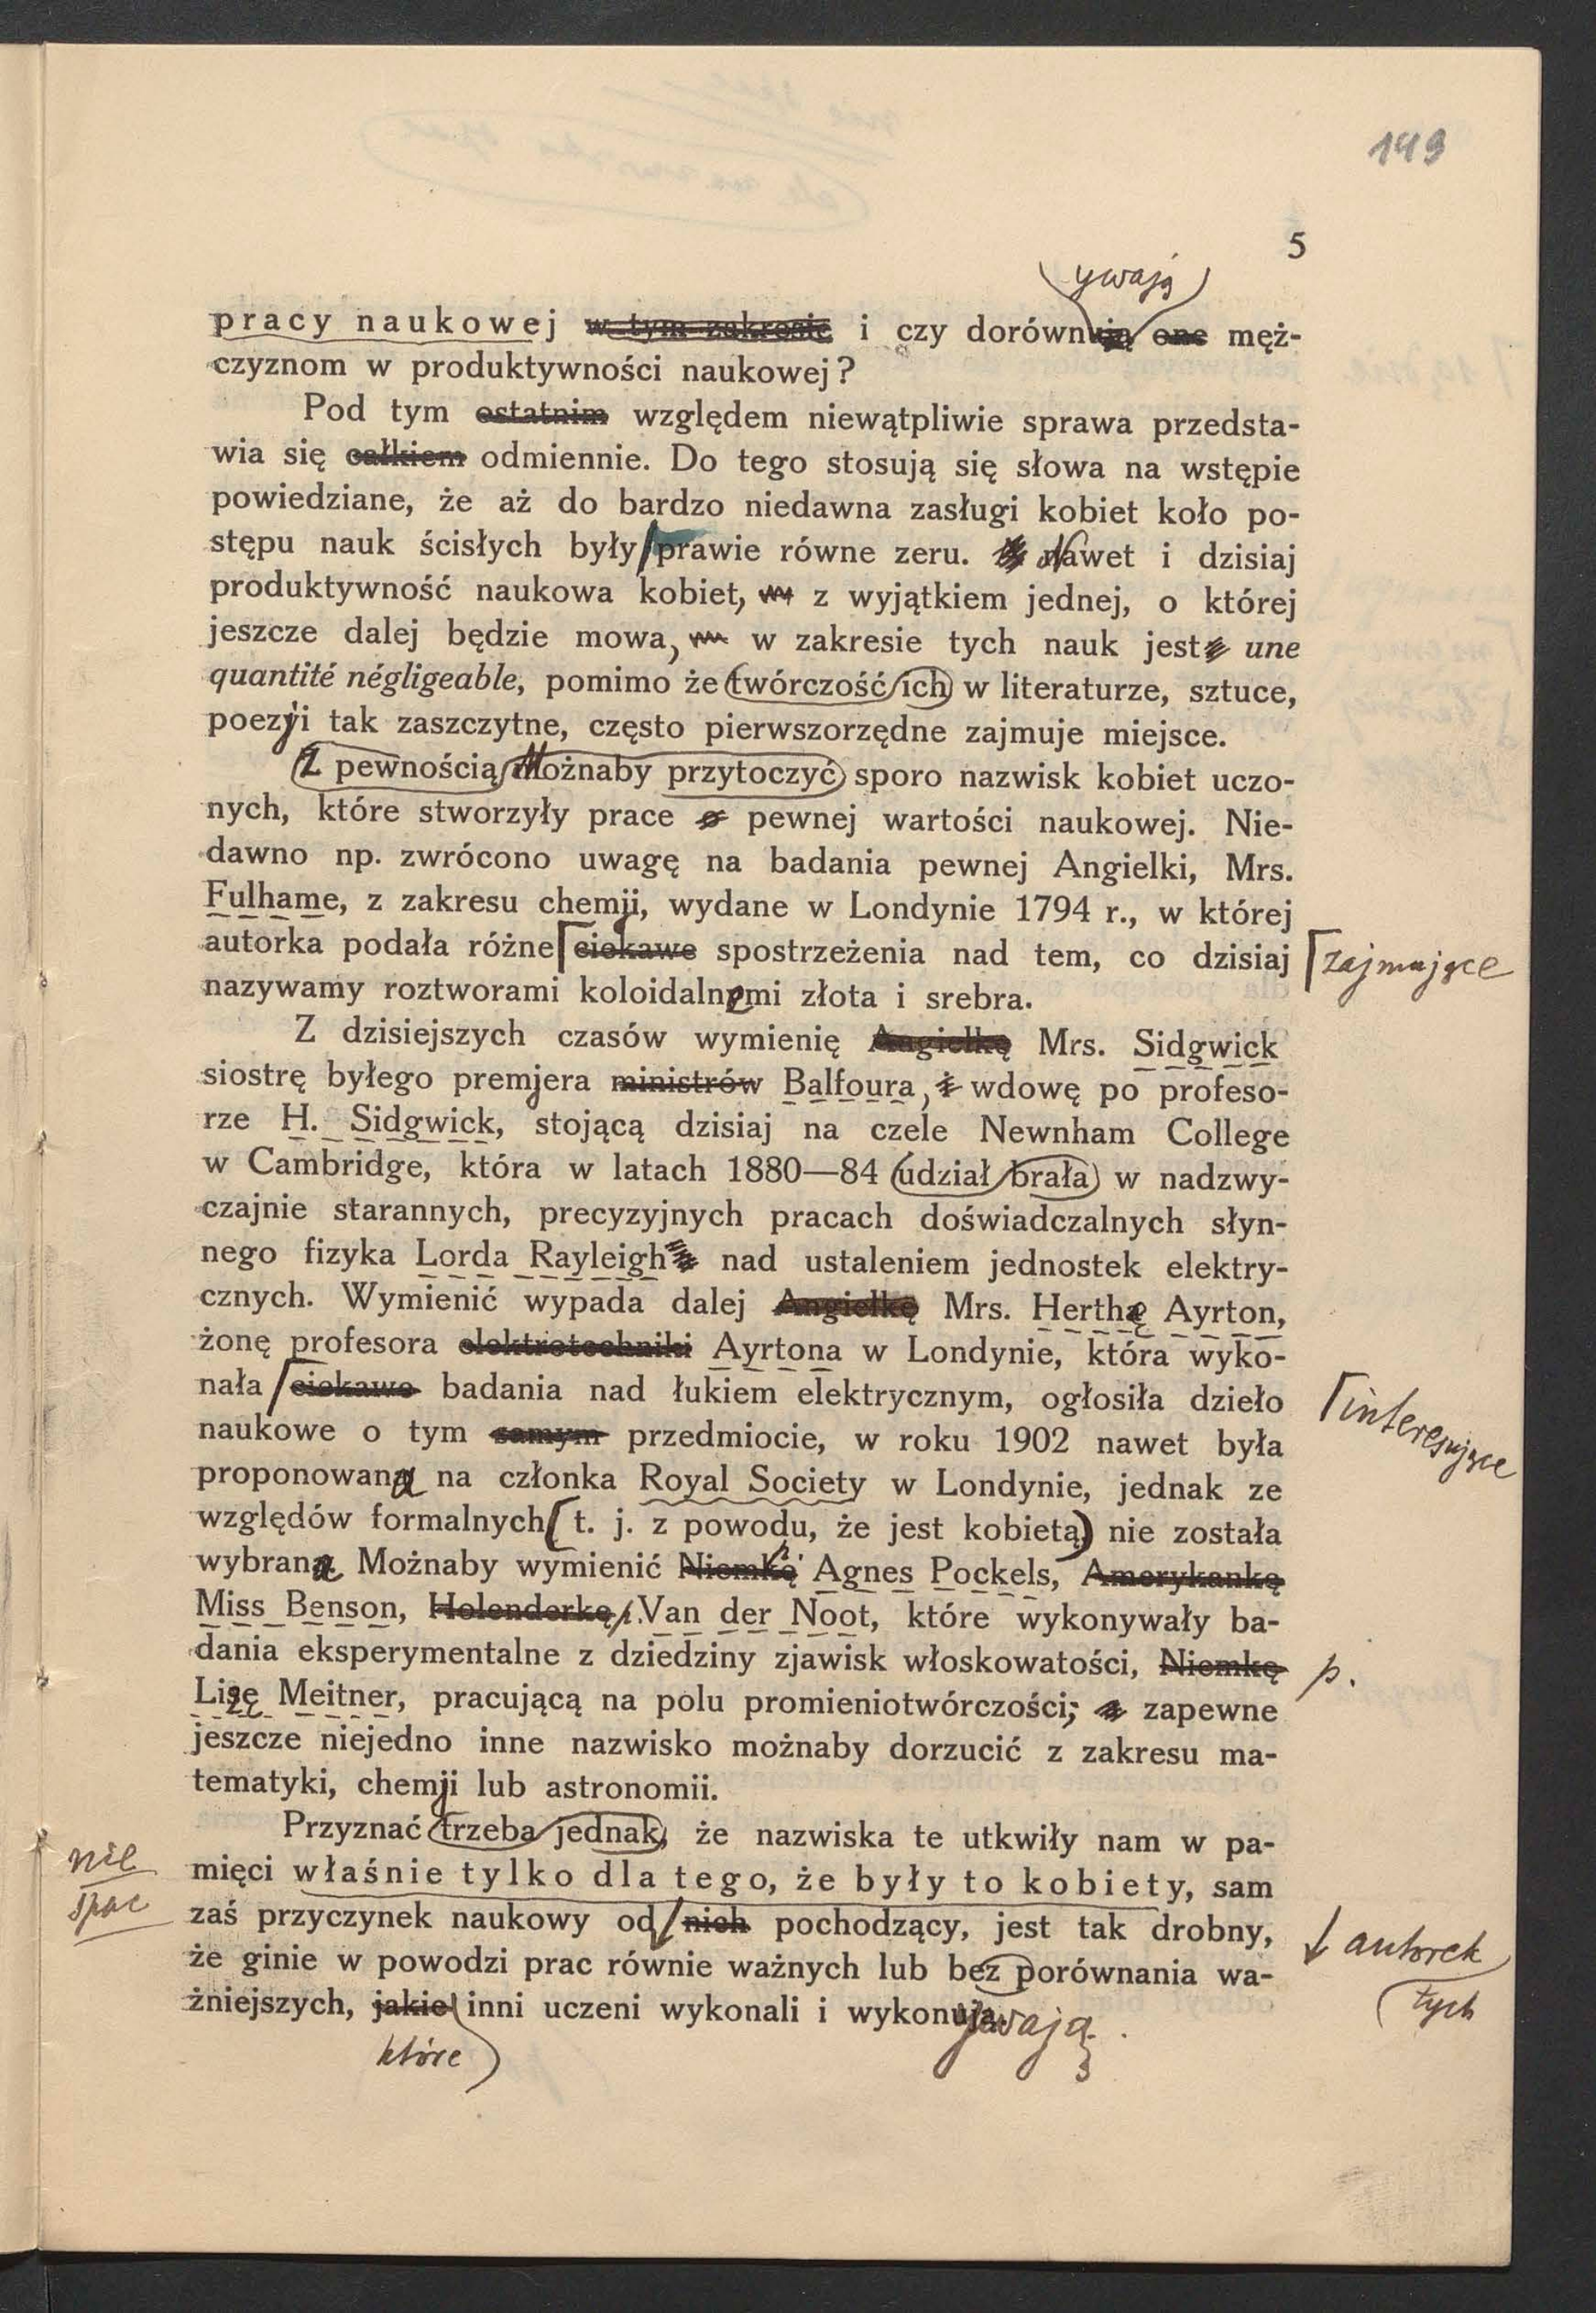 149
5
ywają
pracy naukowej w tym zakresie i czy dorównują one męż-
czyznom w produktywności naukowej?
Pod tym ostatnim względem niewątpliwie sprawa przedsta-
wia się całkiem odmiennie. Do tego stosują się słowa na wstępie
powiedziane, że aż do bardzo niedawna zasługi kobiet koło po-
stępu nauk ścisłych były prawie równe zeru. Nawet i dzisiaj
produktywność naukowa kobiet, z wyjątkiem jednej, o której
jeszcze dalej będzie mowa, w zakresie tych nauk jest une
quantité négligeable, pomimo że twórczość ich w literaturze, sztuce,
poezji tak zaszczytne, często pierwszorzędne zajmuje miejsce.
Z pewnością Możnaby przytoczyć sporo nazwisk kobiet uczo-
nych, które stworzyły prace o pewnej wartości naukowej. Nie-
dawno np. zwrócono uwagę na badania pewnej Angielki, Mrs.
Fulhame, z zakresu chemji, wydane w Londynie 1794 r., w której
autorka podała różne ciekawe spostrzeżenia nad tem, co dzisiaj
zajmujące
nazywamy roztworami koloidalnemi złota i srebra.
Z dzisiejszych czasów wymienię Angielkę Mrs. Sidgwick
siostrę byłego premjera ministrów Balfoura, i wdowę po profeso-
rze H. Sidgwick, stojącą dzisiaj na czele Newnham College
w Cambridge, która w latach 1880—84 udział brała w nadzwy-
czajnie starannych, precyzyjnych pracach doświadczalnych słyn-
nego fizyka Lorda Rayleigh nad ustaleniem jednostek elektry-
cznych. Wymienić wypada dalej Angielkę Mrs. Herthę Ayrton,
żonę profesora elektrotechniki Ayrtona w Londynie, która wyko-
nała ciekawe badania nad łukiem elektrycznym, ogłosiła dzieło
interesujące
naukowe o tym samym przedmiocie, w roku 1902 nawet była
proponowana na członka Royal Society w Londynie, jednak ze
względów formalnych (t. j. z powodu, że jest kobietą) nie została
wybrana. Możnaby wymienić Niemkę Agnes Pockels, Amerykankę
Miss Benson, Holenderkę Van der Noot, które wykonywały ba-
dania eksperymentalne z dziedziny zjawisk włoskowatości, Niemkę
p.
Lizę Meitner, pracującą na polu promieniotwórczości; zapewne
jeszcze niejedno inne nazwisko możnaby dorzucić z zakresu ma-
tematyki, chemji lub astronomii.
Przyznać trzeba jednak, że nazwiska te utkwiły nam w pa-
nie
spac
mięci właśnie tylko dla tego, że były to kobiety, sam
zaś przyczynek naukowy od nich pochodzący, jest tak drobny,
autorek
tych
że ginie w powodzi prac równie ważnych lub bez porównania wa-
żniejszych, jakie inni uczeni wykonali i wykonują.
ywają.
które